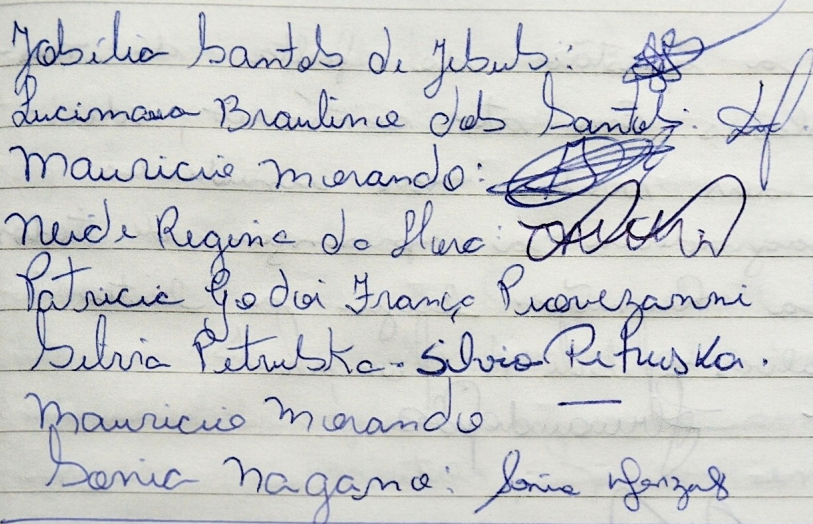 Josilia Santos de Jesus:
Lucimara Braulina dos Santos:
Mauricio Morando:
Neide Regina da
Patricia Godoi França Provezanni
Silvia Petruska - Silvia Petruska.
Mauricio Morando
Sonia Nagano: Sonia